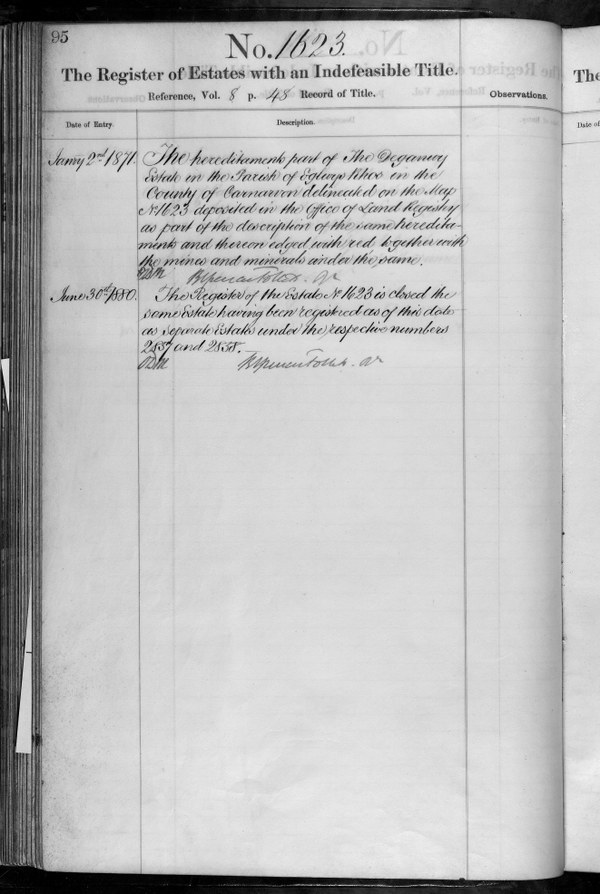 95
No. 1623.
The Register of Estates with an Indefeasible Title.
Reference, Vol. 8 p. 48 Record of Title.
Observations.
Date of Entry.
Description.
The
Date of
Janry 2nd 1871. The hereditaments part of The Deganwy
Estate in the Parish of Eglwys Rhos in the
County of Carnarvon delineated on the Map
No 1623 deposited in the Office of Land Registry
as part of the description of the same heredita-
ments and thereon edged with red together with
the mines and minerals under the same.
June 30th 1880. The Register of the Estate No 1623 is closed the
same Estate having been registered as of this date
as separate Estates under the respective numbers
2857 and 2858.